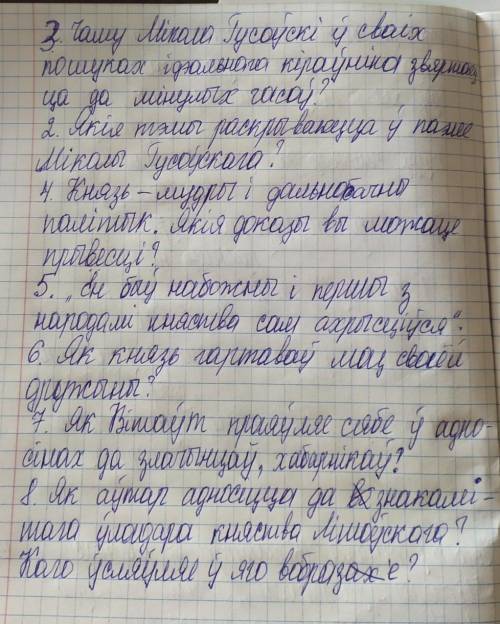 3. Чаму Мікола Гусоўскі ў сваіх
пошуках ідэальнага кіраўніка звяртаец
ца да мінулых часоў?
2. Якія тэмы раскрываюцца ў паэме
Міколы Гусоўскага?
4. Князь – мудры і дальнабачны
палітык. Якія доказы вы можаце
прывесці?
5. „Ён быў набожны і першы з
народамі княства сам ахрысціўся".
6. Як князь гартаваў моц сваёй
дружыны?
7. Як Вітаўт праяўляе сябе ў адно-
сінах да злачынцаў, хабарнікаў?
8. Як аўтар адносіцца да знакамі-
тага ўладара княства Літоўскага?
Каго ўслаўляе ў яго вобразе?